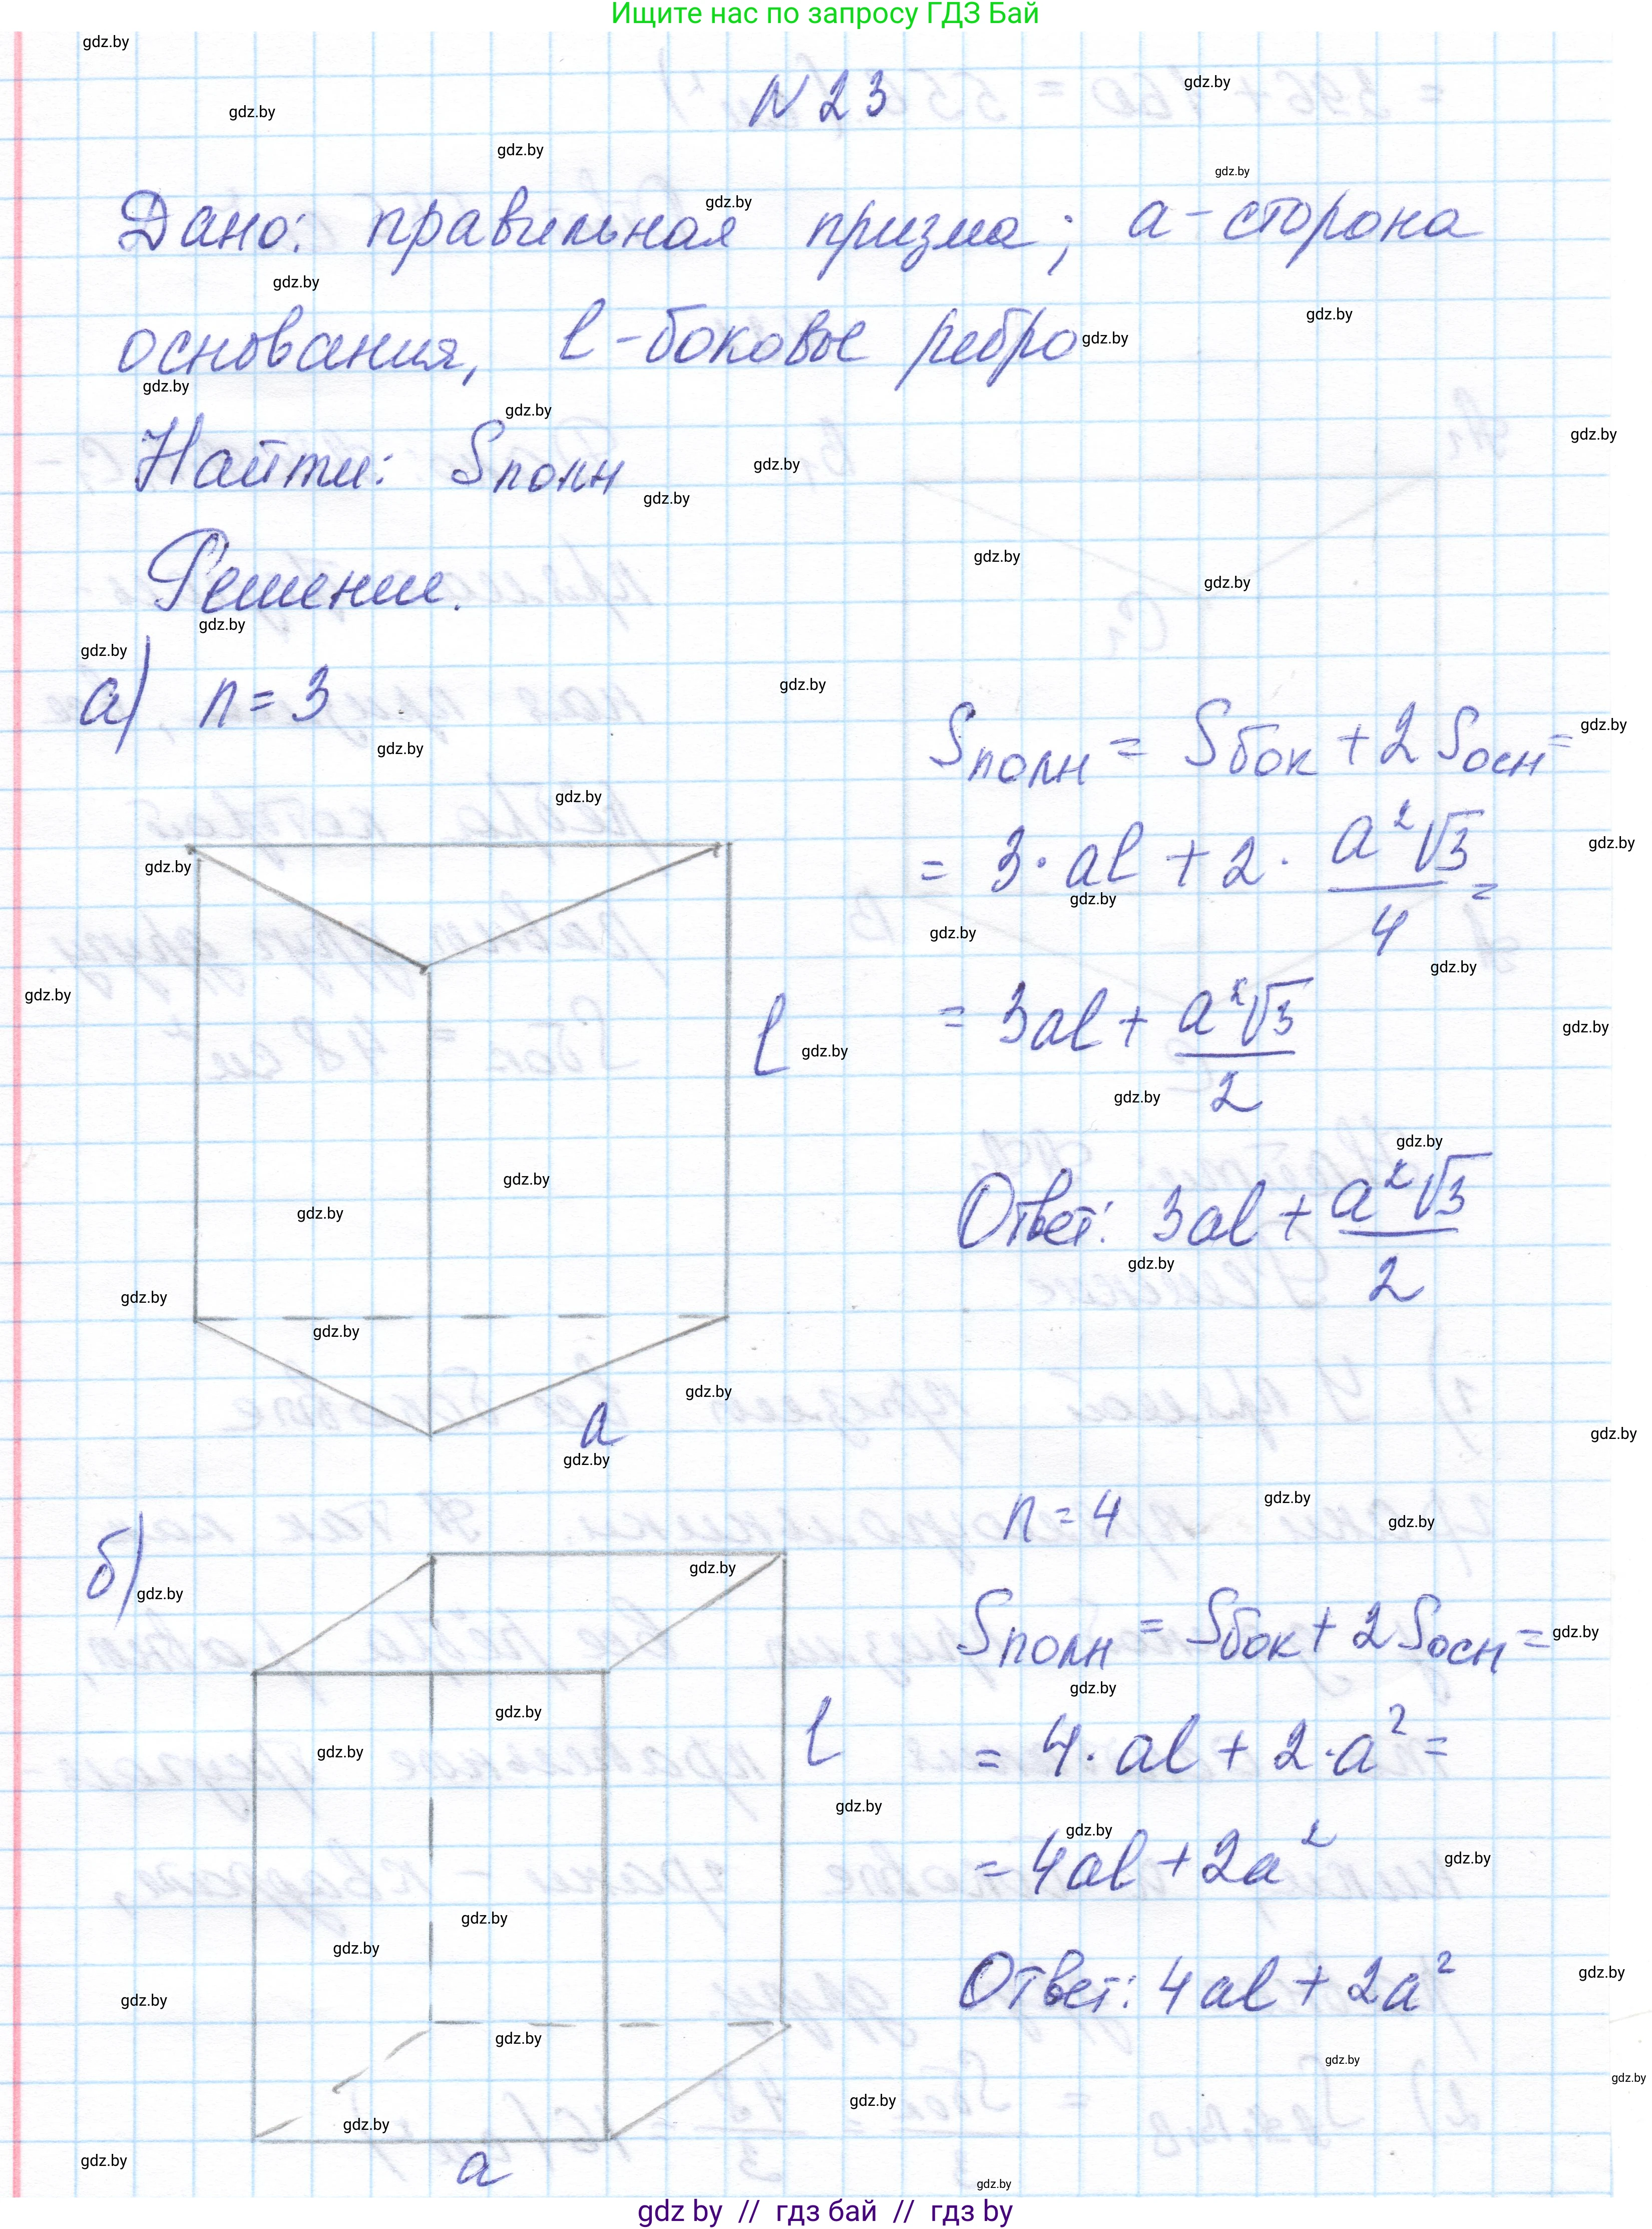 Ищите нас по запросу ГДЗ Бай
N 23
Дано: правильная призма; a - сторона
основания, l - боковое ребро
Найти: Sполн
Решение.
а) n = 3
Sполн = Sбок + 2 Sосн =
= 3 · al + 2 · a²√3/4 =
= 3al + a²√3/2
l
Ответ: 3al + a²√3/2
a
б)
n = 4
Sполн = Sбок + 2 Sосн =
l
= 4 · al + 2 · a² =
= 4al + 2a²
Ответ: 4al + 2a²
a
gdz.by
gdz by // гдз бай // гдз by